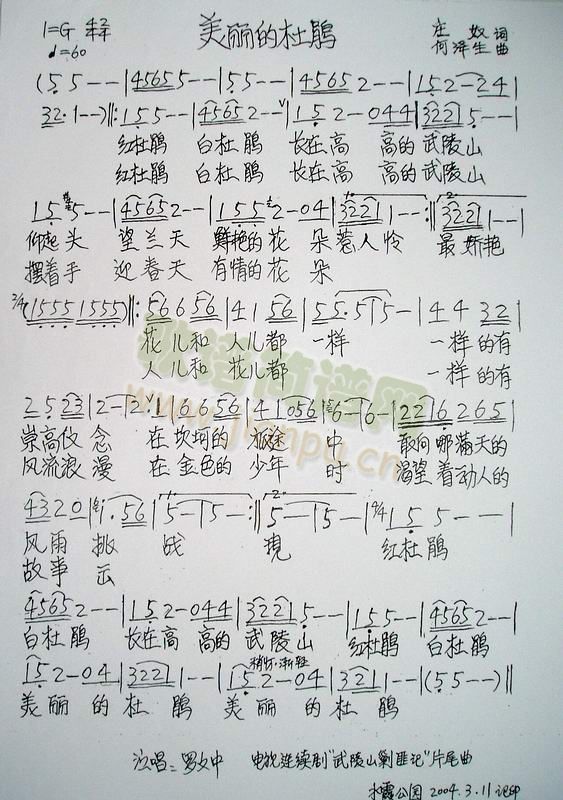 1=G 4/4 2/4
美丽的杜鹃
庄奴 词
♩=60
何泽生 曲
(5 5 - - | 4565 5 - - | 5 5 - - | 4565 2 - - | 15 2 - 24 |
32·1 - -) ‖: 15 5 - - | 4565 2 - - | 15 2 - 044 | 3221 5 - - |
红杜鹃 白杜鹃 长在高 高的 武陵山
红杜鹃 白杜鹃 长在高 高的 武陵山
15 5 - - | 4565 2 - - | 155 2 - 04 | 3221 1 - - :‖ 3221 1 - - |
仰起头 望兰天 鲜艳的花 朵惹人怜 最娇艳
摆着手 迎春天 有情的花 朵
2/4 (1555 1555) ‖: 56 6 56 | 4 1 56 | 55·5 | 5 - | 4 4 32 |
花儿和 人儿都 一样 一样的有
人儿和 花儿都 一样的有
2 5 23 | 2 - | 2·1 | 6 6 56 | 4 1056 | 6 - | 6 - | 2216 265 |
崇高仪 念 在坎坷的 旅途 中 敢向哪满天的
风流浪 漫 在金色的 少年 时 渴望着动人的
4320 | 1· 56 | 5 - | 5 - :‖ 5 - | 5 - | 4/4 15 5 - - |
风雨 挑 战 现 红杜鹃
故事 云
4565 2 - - | 15 2 - 044 | 3221 5 - - | 15 5 - - | 4565 2 - - |
白杜鹃 长在高 高的 武陵山 红杜鹃 白杜鹃
稍快·渐轻
15 2 - 04 | 3221 1 - - | 15 2 - 04 | 3221 1 - - | (5 5 - -) ‖
美丽 的 杜鹃 美丽 的 杜鹃
演唱:罗文中 电视连续剧"武陵山剿匪记"片尾曲
水霞公园 2004.3.11 记